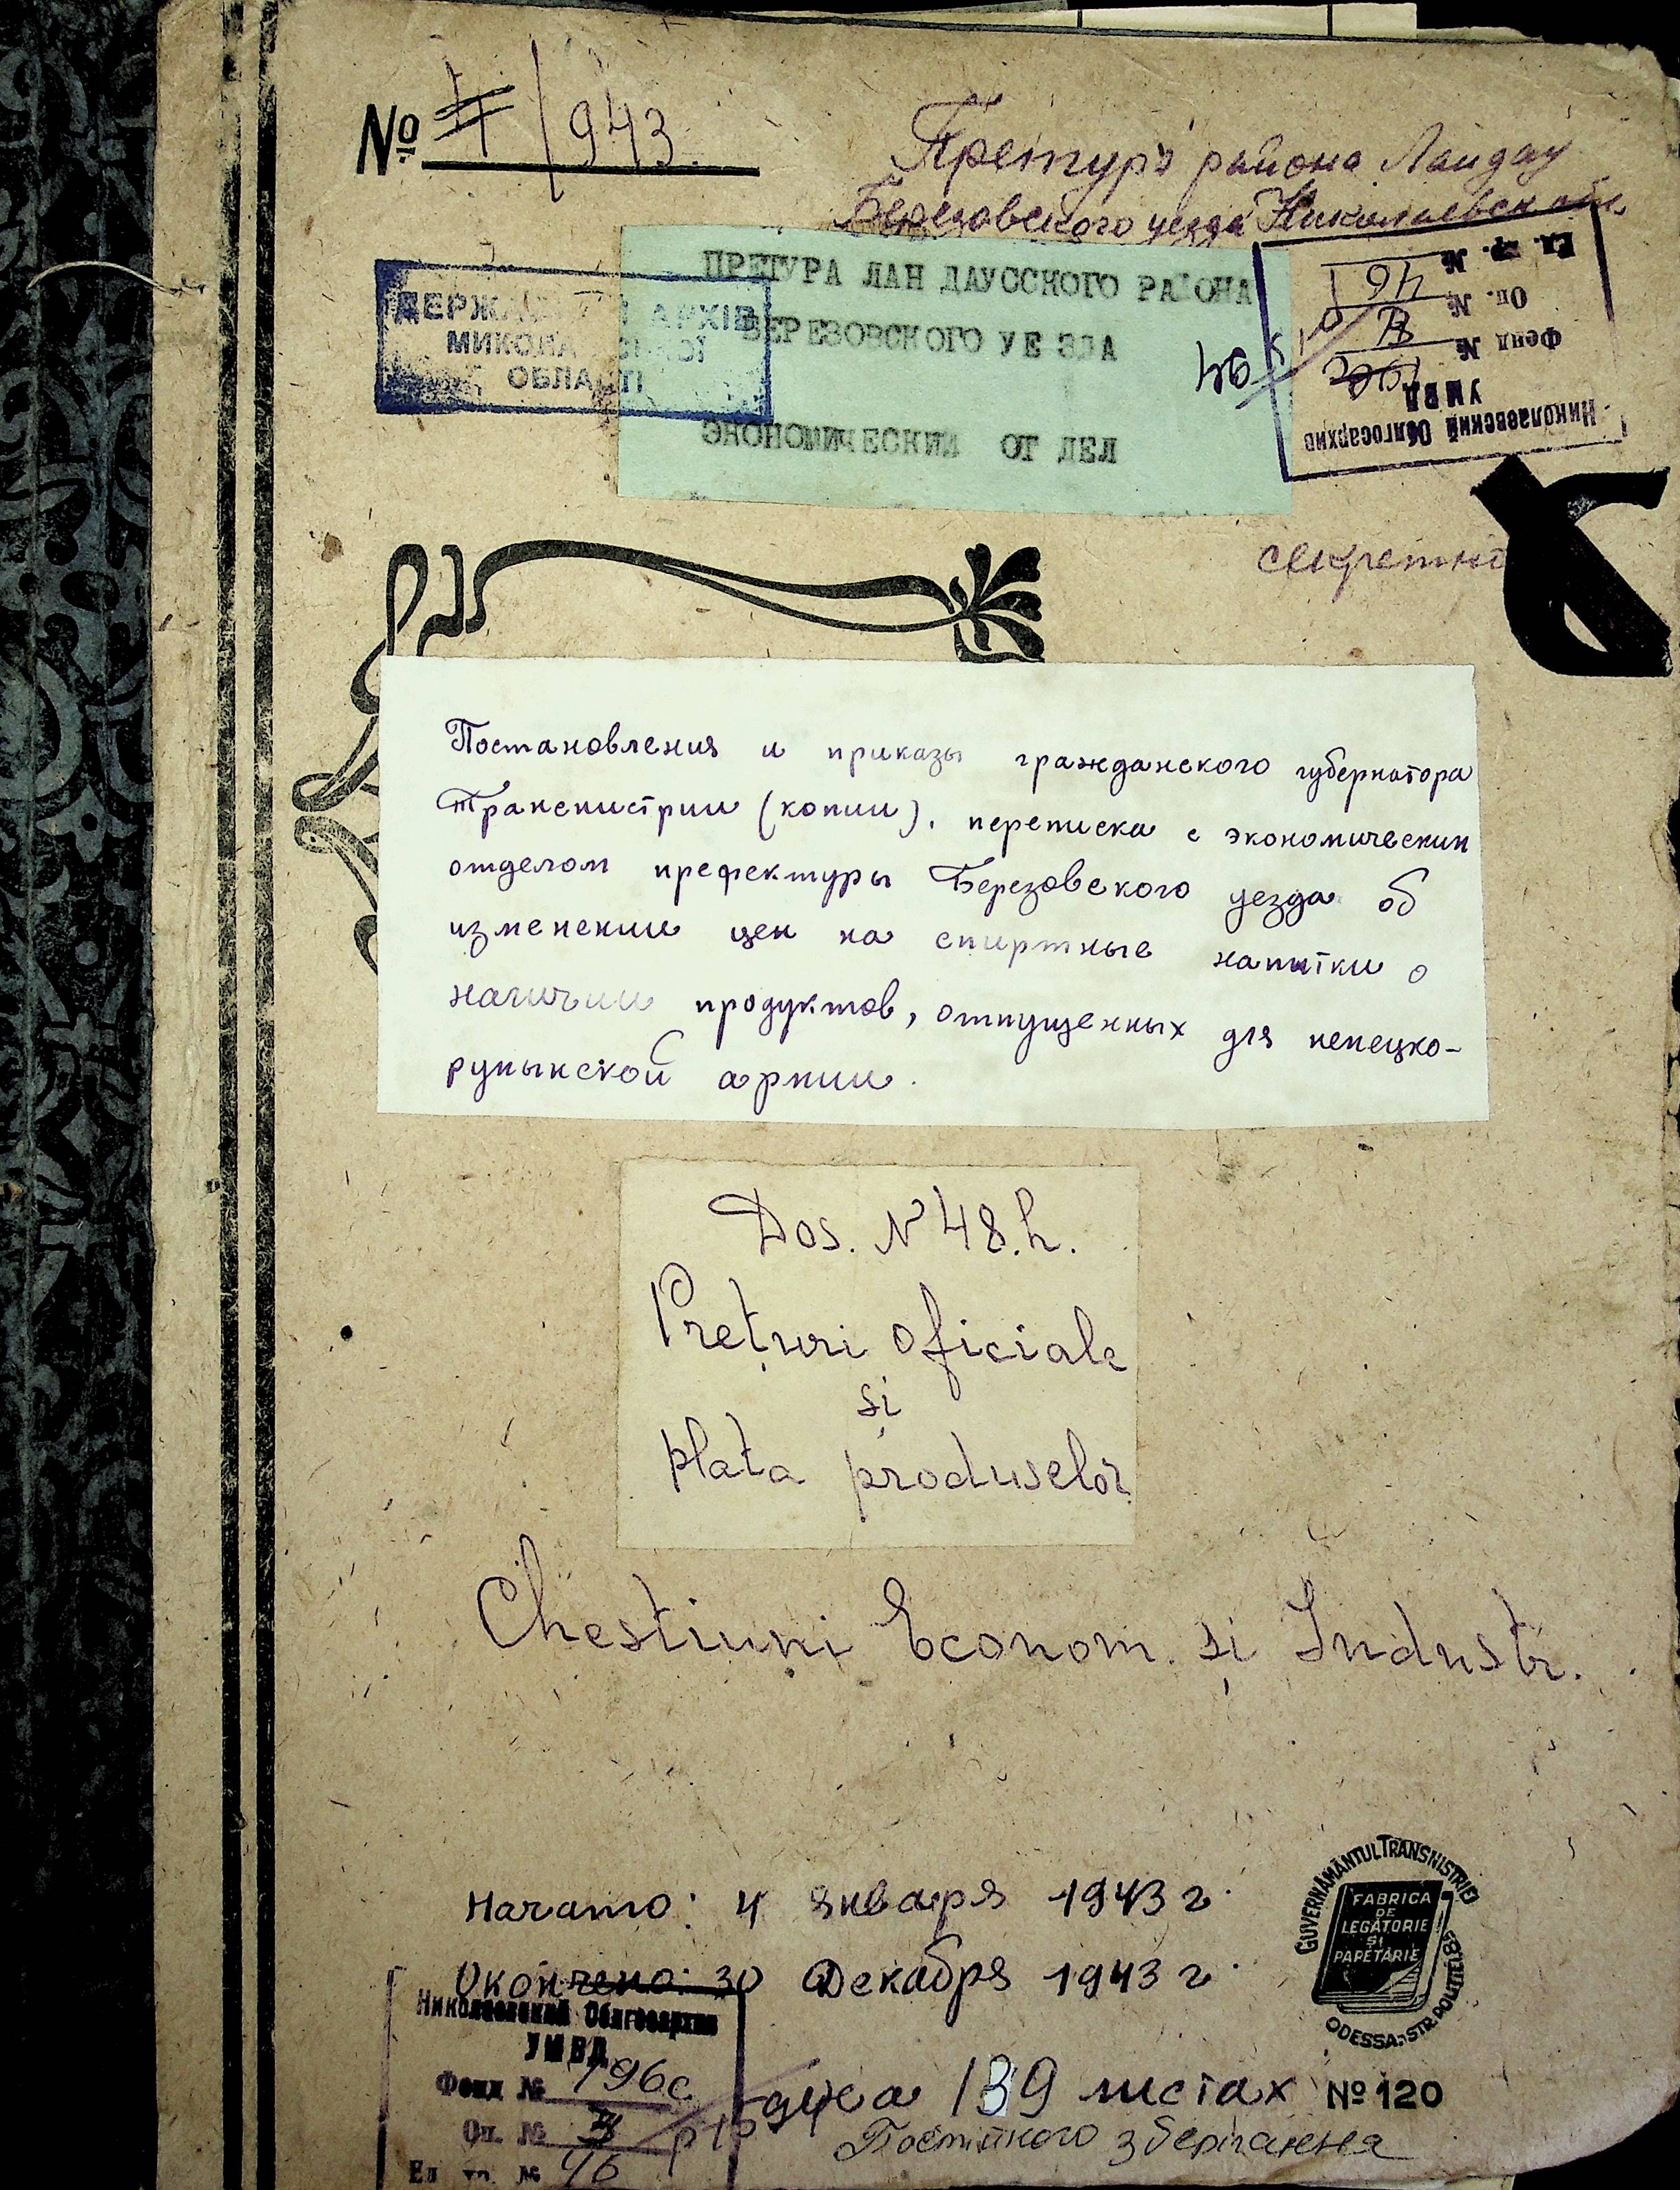 № 4/943.
Претура района Ландау
Березовского уезда Николаевск обл.
ПРЕТУРА ЛАН ДАУССКОГО РАЙОНА
БЕРЕЗОВСКОГО УЕ ЗДА
ЭКОНОМИЧЕСКИЙ ОТ ДЕЛ
ДЕРЖАВНИЙ АРХІВ
МИКОЛАЇВСЬКОЇ
ОБЛАСТІ
Николаевский Облгосархив
УМВД
Фонд №
Оп. №
Ед. хр. № 46
секретно
Постановления и приказы гражданского губернатора
Транснистрии (копии), переписка с экономическим
отделом префектуры Березовского уезда об
изменении цен на спиртные напитки о
наличии продуктов, отпущенных для немецко-
румынской армии.
Dos. N 48.h.
Prețuri oficiale
și
plata produselor
Chestiuni Econom. și Industr.
Начато: 4 января 1943 г.
Окончено: 30 Декабря 1943 г.
GUVERNĂMÂNTUL TRANSNISTRIEI
FABRICA
DE
LEGĂTORIE
ȘI
PAPETĂRIE
ODESSA, STR.
Николаевский Облгосархив
УМВД
Фонд № 196с
Оп. №
Ед. хр. № 46
на 139 листах
№ 120
Постійного зберігання